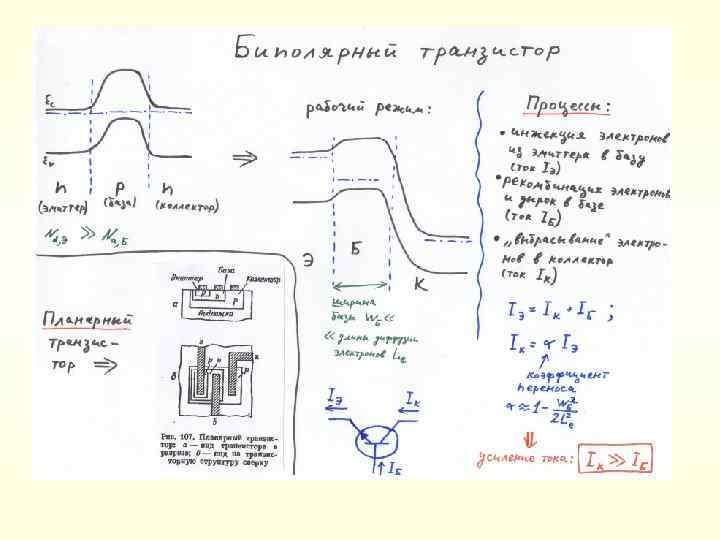 Биполярный транзистор
Ec
Ev
n p n
(эмиттер) (база) (коллектор)
N d,Э ≫ N a,Б
⇒
рабочий режим:
Э Б К
ширина
базы W Б ≪
≪ длины диффузии
электронов L e
Процессы:
• инжекция электронов
из эмиттера в базу
(ток I Э)
• рекомбинация электронов
и дырок в базе
(ток I Б)
• „выбрасывание" электро-
нов в коллектор
(ток I К)
I Э = I К + I Б ;
I К = α I Э
коэффициент
переноса
α ≈ 1 - W Б² / 2L e²
усиление тока: I К ≫ I Б
Планарный
транзис-
тор ⇒
База
Эмиттер Коллектор
p n p
а
Подложка
э к
p n
p
б
б
Рис. 107. Планарный транзис-
тор: а — вид транзистора в
разрезе; б — вид на транзис-
торную структуру сверху
I Э I К
I Б